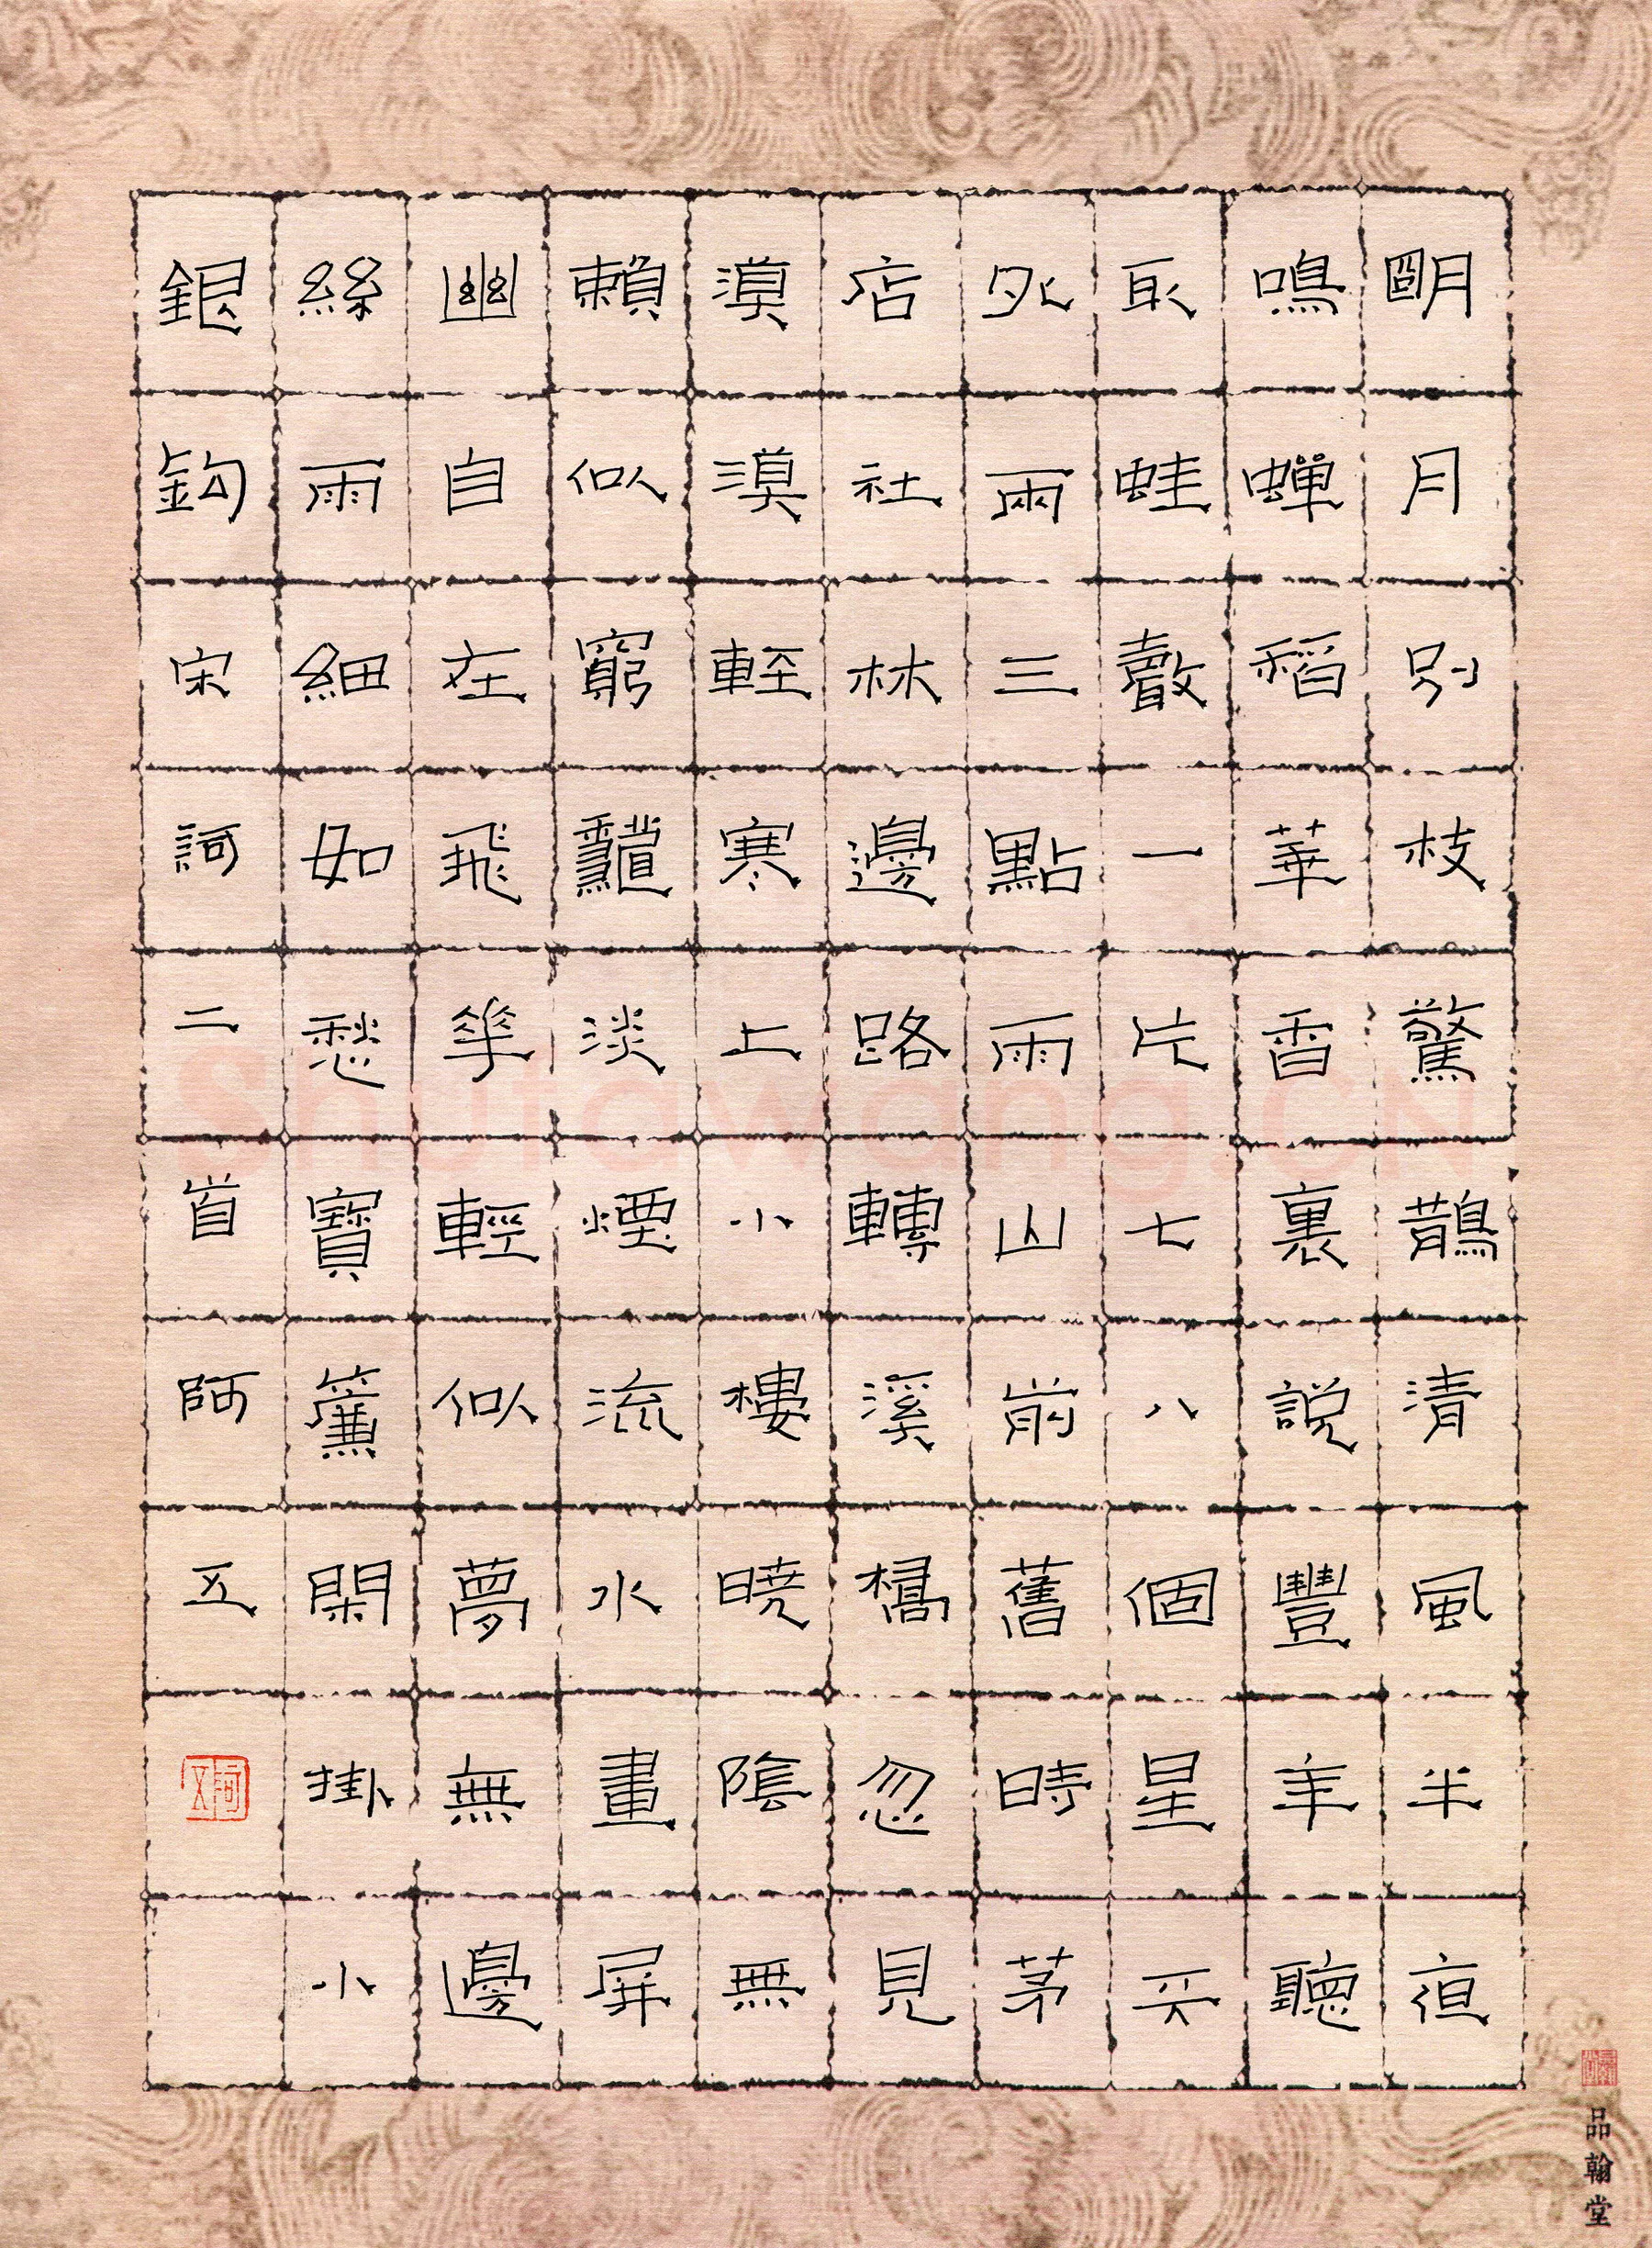 明月别枝驚鵲清風半夜
鳴蟬稻華香裏説豐年聽
取蛙聲一片七八個星天
外兩三點雨山前舊時茅
店社林邊路轉溪橋忽見
漠漠輕寒上小樓曉陰無
賴似窮龝淡煙流水畫屏
幽自在飛花輕似夢無邊
絲雨細如愁寶簾閑掛小
銀鈎宋詞二首阿五
品翰堂
Shufawang.CN